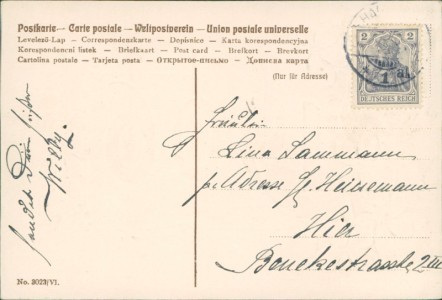 Postkarte — Carte postale — Weltpostverein — Union postale universelle
Levelező-Lap — Correspondenzkarte — Dopisnice — Karta korespondencyjna
Korespondencni listek — Briefkaart — Post card — Brefkort — Brevkort
Cartolina postale — Tarjeta posta — Открытое письмо — Дописна карта
(Nur für Adresse)
2 2
DEUTSCHES REICH
Fräulein
Lina Lammann
p. Adresse Hinsemann
Hier
Benekestrasse 2
sendet Dein
Willy.
No. 3023/VI.